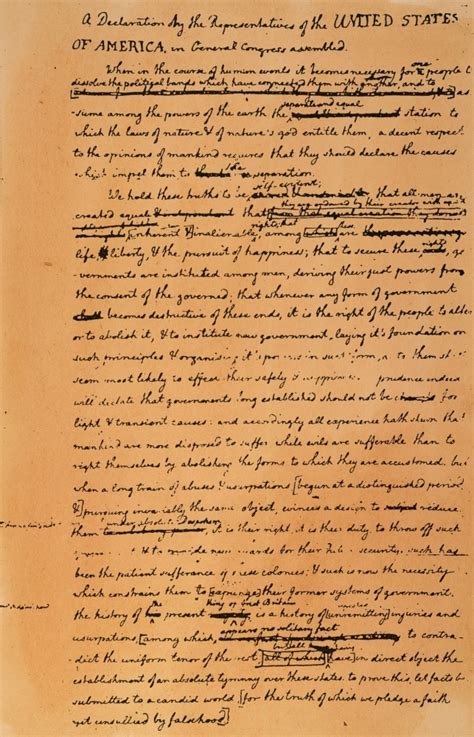 A Declaration by the Representatives of the UNITED STATES
OF AMERICA, in General Congress assembled.
When in the course of human events it becomes necessary for one people to
dissolve the political bands which have connected them with another, and to as-
separate and equal
sume among the powers of the earth the station to
which the laws of nature & of nature's god entitle them, a decent respect
to the opinions of mankind requires that they should declare the causes
which impel them to the separation.
self-evident;
We hold these truths to be that all men are
they are endowed by their creator with
created equal & independant that from that equal creation they derive
rights; that
[inherent &] inalienable among which are
life, & liberty, & the pursuit of happiness; that to secure these rights, go-
vernments are instituted among men, deriving their just powers from
the consent of the governed; that whenever any form of government
becomes destructive of these ends, it is the right of the people to alter
or to abolish it, & to institute new government, laying it's foundation on
such principles & organising it's powers in such form, as to them shall
seem most likely to effect their safety & happiness. prudence indeed
will dictate that governments long established should not be changed for
light & transient causes: and accordingly all experience hath shewn that
mankind are more disposed to suffer while evils are sufferable than to
right themselves by abolishing the forms to which they are accustomed. but
when a long train of abuses & usurpations [begun at a distinguished period
&] pursuing invariably the same object, evinces a design to reduce
under absolute Despotism
them it is their right, it is their duty, to throw off such
& to provide new guards for their future security. such has
been the patient sufferance of these colonies; & such is now the necessity
which constrains them to [expunge] their former systems of government.
the King of Great Britain
the history of present is a history of [unremitting] injuries and
appears no solitary fact
usurpations, [among which to contra-
but all
dict the uniform tenor of the rest [all of which] have in direct object the
establishment of an absolute tyranny over these states. to prove this, let facts be
submitted to a candid world [for the truth of which we pledge a faith
yet unsullied by falsehood]